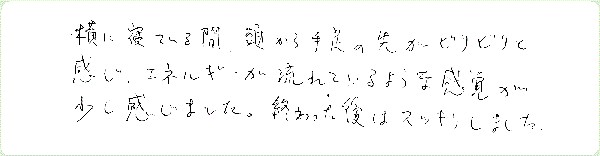 横に寝ている間、頭から手足の先がビリビリと
感じ、エネルギーが流れているような感覚が
少し感じました。終わった後はスッキリしました。